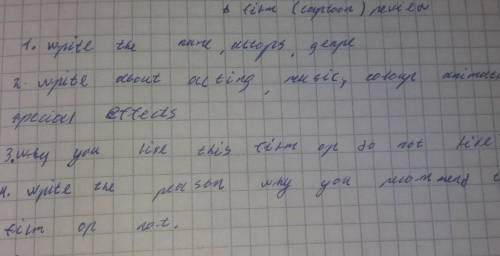 A film (cartoon) review
1. write the name, actors, genre
2. write about acting, music, colour animated
special effects
3. why you like this film or do not like
4. write the reason why you recommend
film or not.